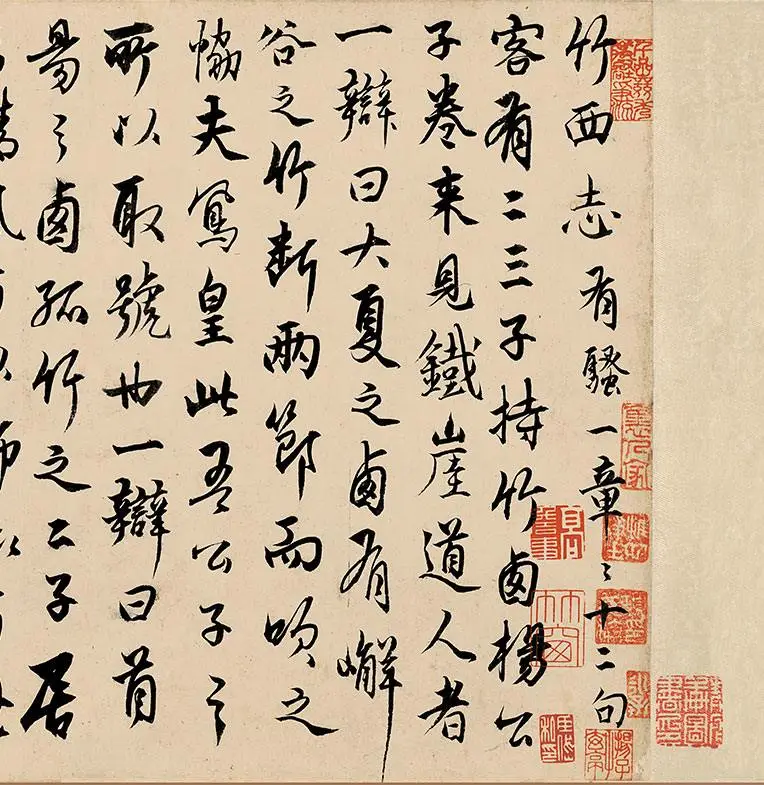 竹西志有騷一章〻十二句
客有二三子持竹卥楊公
子卷来見鐵崖道人者
一辯曰大夏之卥有嶰
谷之竹断兩節而吹之
恊夫鳳皇此吾公子之
所以取號也一辯曰首
昜之卥孤竹之二子居